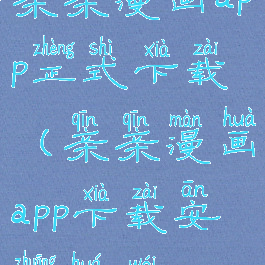 亲亲漫画ap
zhèng shì xià zài
p正式下载
qīn qīn màn huà
(亲亲漫画
xià zài ān
app下载安